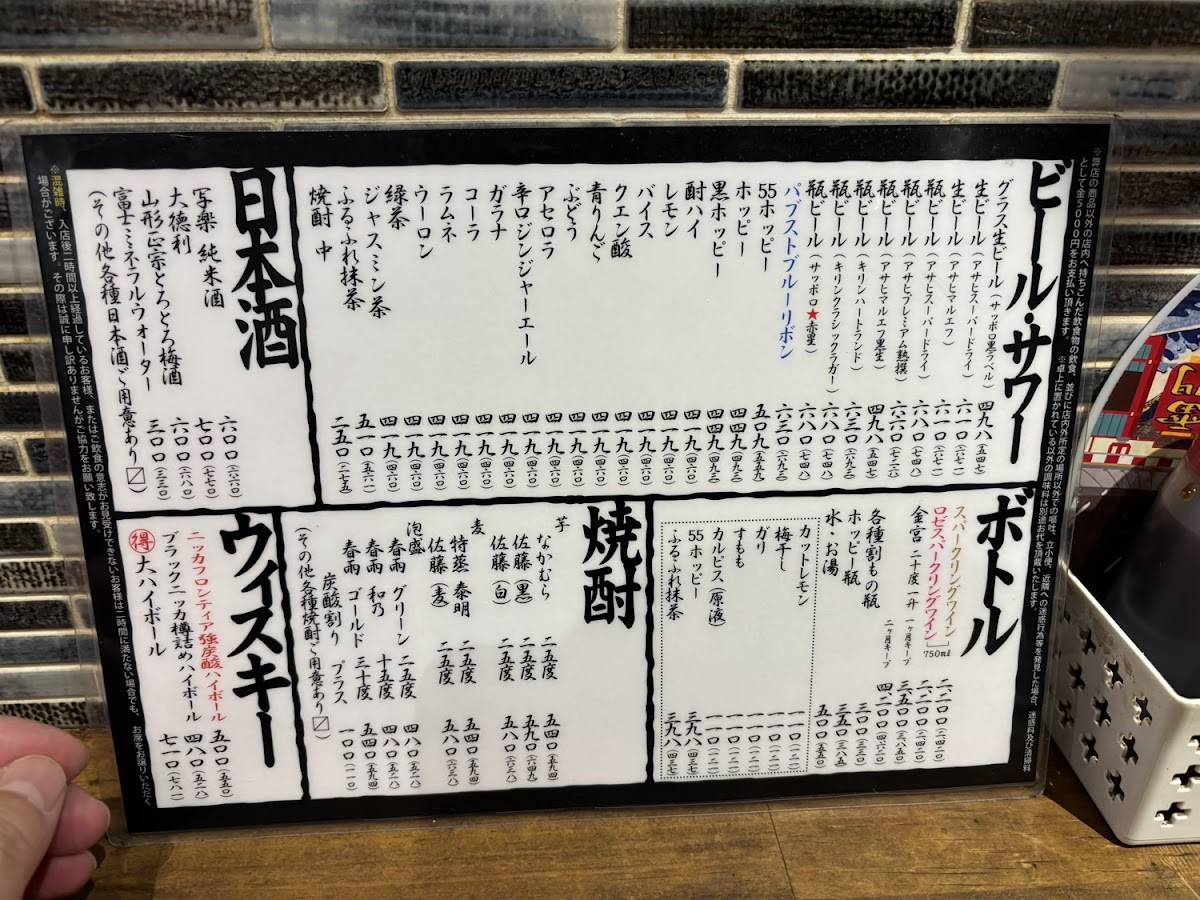 ※弊店の商品以外の店内へ持ちこんだ飲食物の飲食、並びに店内外所定の場所以外での嘔吐、立小便、近隣への迷惑行為等を発見した場合、迷惑料及び清掃料
として金5000円をお支払い頂きます。 ※卓上に置かれている以外の調味料は別途お代を頂戴いたします。
ビール・サワー
グラス生ビール（サッポロ黒ラベル） 四九八（五四七）
生ビール（アサヒスーパードライ） 六一〇（六七一）
生ビール（アサヒマルエフ） 六一〇（六七一）
瓶ビール（アサヒスーパードライ） 六六〇（七二六）
瓶ビール（アサヒプレミアム熟撰） 六六〇（七二六）
瓶ビール（アサヒマルエフ黒生） 四九八（五四七）
瓶ビール（キリンハートランド） 六三〇（六九三）
瓶ビール（キリンクラシックラガー） 六八〇（七四八）
瓶ビール（サッポロ★赤星） 六八〇（七四八）
パブストブルーリボン 六三〇（六九三）
55ホッピー 五〇九（五五九）
ホッピー 四四九（四九三）
黒ホッピー 四四九（四九三）
酎ハイ 四一九（四六〇）
レモン 四一九（四六〇）
バイス 四一九（四六〇）
クエン酸 四一九（四六〇）
青りんご 四一九（四六〇）
ぶどう 四一九（四六〇）
アセロラ 四一九（四六〇）
辛口ジンジャーエール 四一九（四六〇）
ガラナ 四一九（四六〇）
コーラ 四一九（四六〇）
ラムネ 四一九（四六〇）
ウーロン 四一九（四六〇）
緑茶 四一九（四六〇）
ジャスミン茶 四一九（四六〇）
ふるふれ抹茶 五一〇（五六一）
焼酎 中 二五〇（二七五）
日本酒
写楽 純米酒 六〇〇（六六〇）
大徳利 七〇〇（七七〇）
山形正宗とろとろ梅酒 六〇〇（六六〇）
富士ミネラルウォーター 三〇〇（三三〇）
（その他各種日本酒ご用意あり〼）
ボトル
スパークリングワイン 二二〇〇（二四二〇）
ロゼスパークリングワイン 750ml 二二〇〇（二四二〇）
金宮 二十度一升 一ヶ月キープ 三五〇〇（三八五〇）
二ヶ月キープ 四二〇〇（四六二〇）
各種割もの瓶 三〇〇（三三〇）
ホッピー瓶 三五〇（三八五）
水・お湯 五〇〇（五五〇）
カットレモン 一一〇（一二一）
梅干し 一一〇（一二一）
ガリ 一一〇（一二一）
すもも 一一〇（一二一）
カルピス（原液） 一一〇（一二一）
55ホッピー 三九八（四三七）
ふるふれ抹茶 三九八（四三七）
焼酎
芋
なかむら 二五度 五四〇（五九四）
佐藤（黒） 二五度 五九〇（六四九）
佐藤（白） 二五度 五八〇（六三八）
麦
特蒸 泰明 二五度 五四〇（五九四）
佐藤（麦） 二五度 五八〇（六三八）
泡盛
春雨 グリーン 二五度 四八〇（五二八）
春雨 和乃 十五度 四八〇（五二八）
春雨 ゴールド 三十度 五四〇（五九四）
炭酸割り プラス 一〇〇（一一〇）
（その他各種焼酎ご用意あり〼）
ウィスキー
ニッカフロンティア強炭酸ハイボール 五〇〇（五五〇）
ブラックニッカ樽詰めハイボール 四八〇（五二八）
得 大ハイボール 七一〇（七八一）
※混雑時、入店後二時間以上経過しているお客様、またはご飲食の意志がお見受けできないお客様は二時間に満たない場合でも、お席をお譲りいただく
場合がございます。その際は誠に申し訳ありませんがご協力をお願い致します。